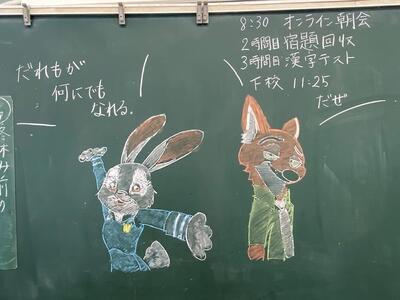 だれもが
何にでも
なれる.
8:30 オンライン朝会
2時間目 宿題回収
3時間目 漢字テスト
下校 11:25
だぜ
休み前の